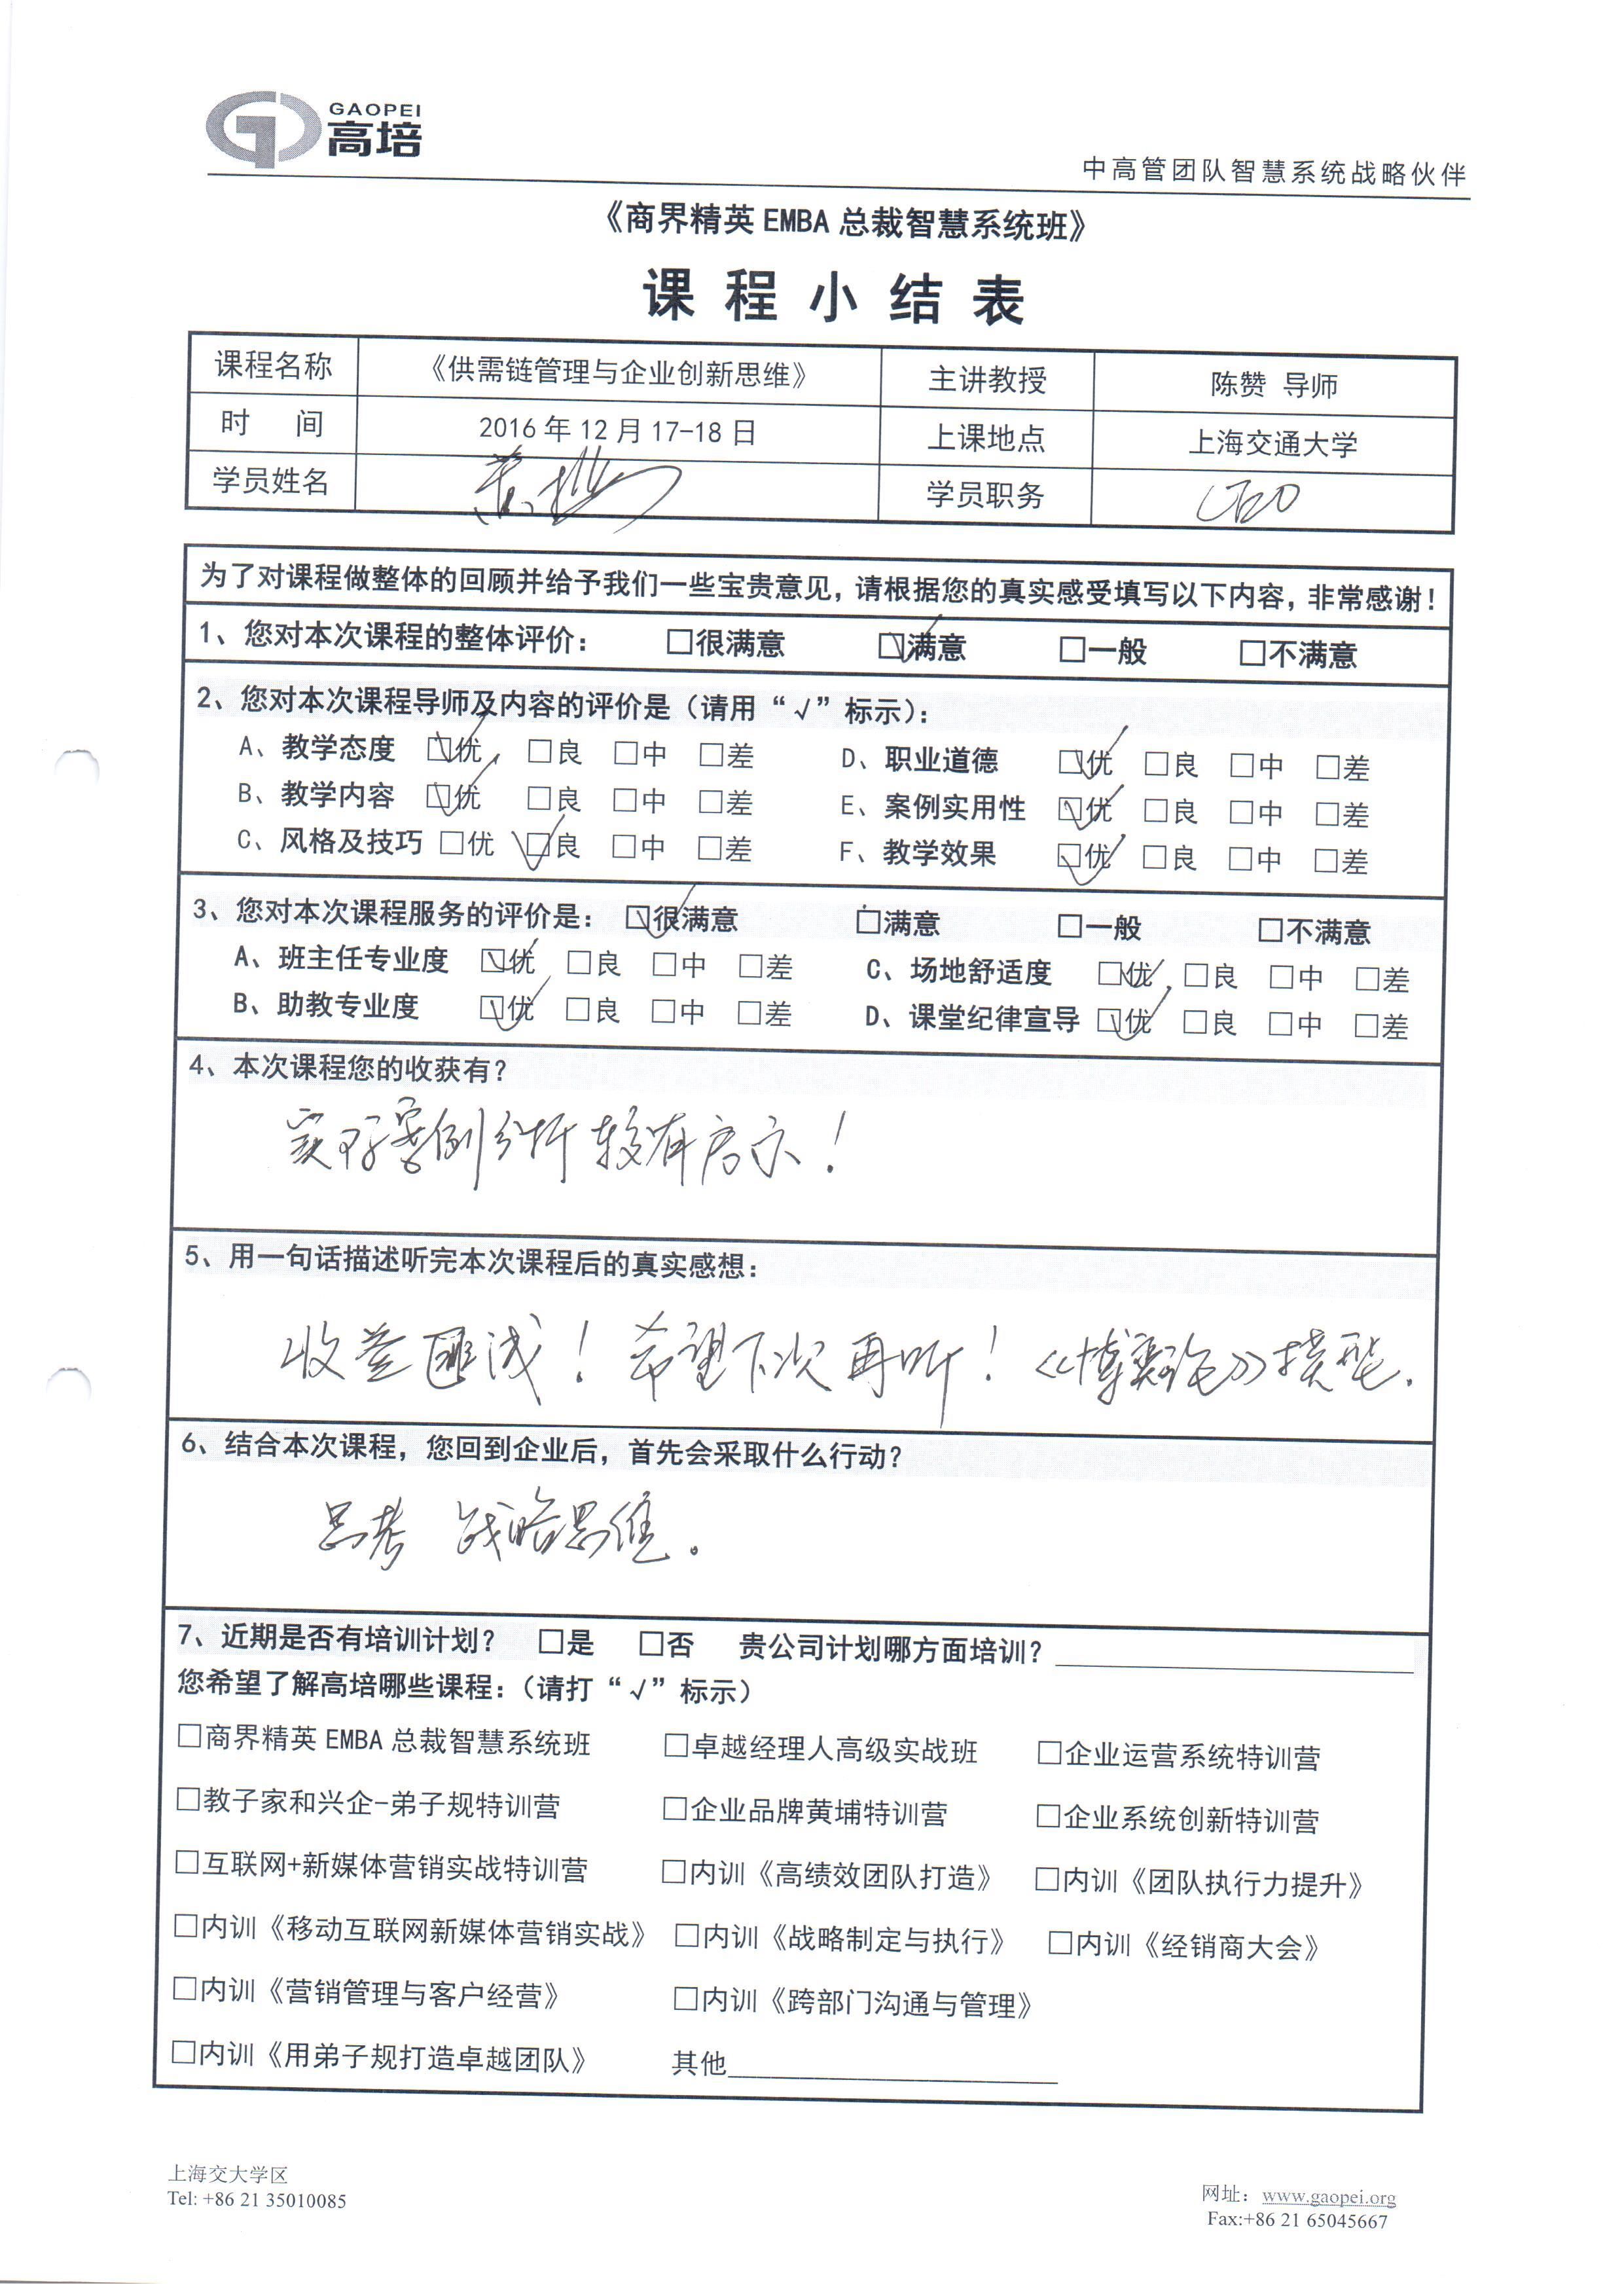 GAOPEI
高培
中高管团队智慧系统战略伙伴
《商界精英 EMBA 总裁智慧系统班》
课程小结表
课程名称 《供需链管理与企业创新思维》 主讲教授 陈赞 导师
时 间 2016 年 12 月 17-18 日 上课地点 上海交通大学
学员姓名 学员职务 CEO
为了对课程做整体的回顾并给予我们一些宝贵意见，请根据您的真实感受填写以下内容，非常感谢！
1、您对本次课程的整体评价： □很满意 ☑满意 □一般 □不满意
2、您对本次课程导师及内容的评价是（请用“√”标示）：
A、教学态度 ☑优 □良 □中 □差 D、职业道德 ☑优 □良 □中 □差
B、教学内容 ☑优 □良 □中 □差 E、案例实用性 ☑优 □良 □中 □差
C、风格及技巧 □优 ☑良 □中 □差 F、教学效果 ☑优 □良 □中 □差
3、您对本次课程服务的评价是： ☑很满意 □满意 □一般 □不满意
A、班主任专业度 ☑优 □良 □中 □差 C、场地舒适度 ☑优 □良 □中 □差
B、助教专业度 ☑优 □良 □中 □差 D、课堂纪律宣导 ☑优 □良 □中 □差
4、本次课程您的收获有？
案例分析较有启示！
5、用一句话描述听完本次课程后的真实感想：
收益匪浅！希望下次再听！《博弈论》模型.
6、结合本次课程，您回到企业后，首先会采取什么行动？
思考 战略思维。
7、近期是否有培训计划？ □是 □否 贵公司计划哪方面培训？
您希望了解高培哪些课程：（请打“√”标示）
□商界精英 EMBA 总裁智慧系统班 □卓越经理人高级实战班 □企业运营系统特训营
□教子家和兴企-弟子规特训营 □企业品牌黄埔特训营 □企业系统创新特训营
□互联网+新媒体营销实战特训营 □内训《高绩效团队打造》 □内训《团队执行力提升》
□内训《移动互联网新媒体营销实战》 □内训《战略制定与执行》 □内训《经销商大会》
□内训《营销管理与客户经营》 □内训《跨部门沟通与管理》
□内训《用弟子规打造卓越团队》 其他
上海交大学区
Tel: +86 21 35010085
网址：www.gaopei.org
Fax:+86 21 65045667